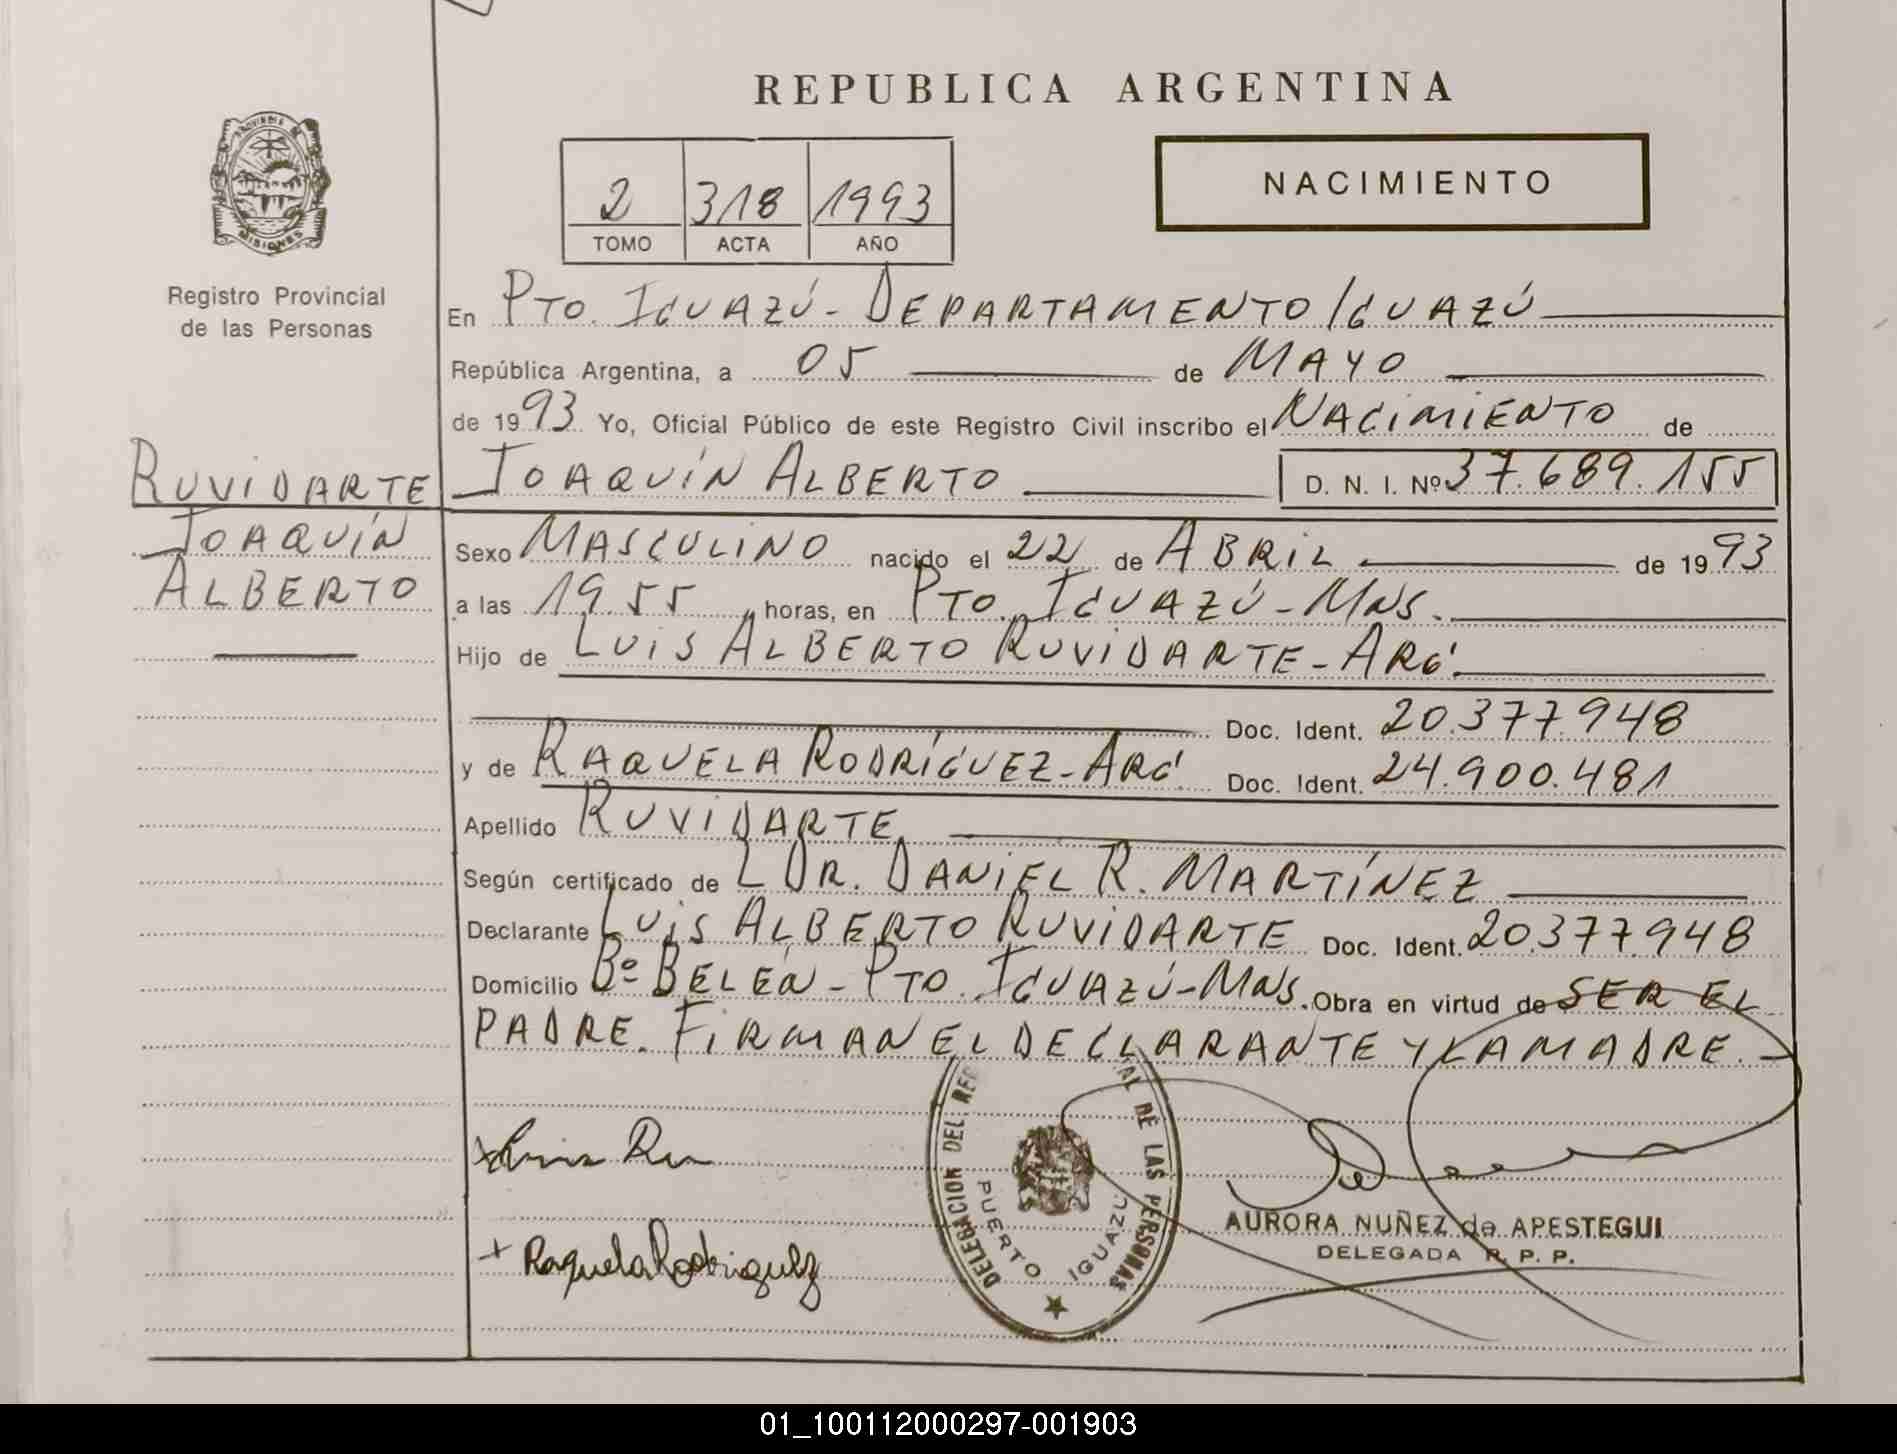 REPUBLICA ARGENTINA
PROVINCIA DE
MISIONES
Registro Provincial
de las Personas
2 318 1993
TOMO ACTA AÑO
NACIMIENTO
En PTO. IGUAZÚ - DEPARTAMENTO IGUAZÚ
República Argentina, a 05 de MAYO
de 1993 Yo, Oficial Público de este Registro Civil inscribo el NACIMIENTO de
RUVIDARTE
JOAQUÍN
ALBERTO
JOAQUÍN ALBERTO D. N. I. Nº 37.689.155
Sexo MASCULINO nacido el 22 de ABRIL de 1993
a las 19.55 horas, en PTO. IGUAZÚ - MNS.
Hijo de LUIS ALBERTO RUVIDARTE - ARG.
Doc. Ident. 20.377.948
y de RAQUELA RODRÍGUEZ - ARG. Doc. Ident. 24.900.481
Apellido RUVIDARTE
Según certificado de L DR. DANIEL R. MARTÍNEZ
Declarante LUIS ALBERTO RUVIDARTE Doc. Ident. 20.377.948
Domicilio Bº BELÉN - PTO. IGUAZÚ - MNS. Obra en virtud de SER EL
PADRE. FIRMAN EL DECLARANTE Y LA MADRE. -
Raquela Rodriguez
DELEGACION DEL REG AL DE LAS PERSONAS
PUERTO IGUAZU
AURORA NUÑEZ de APESTEGUI
DELEGADA R. P. P.
01_100112000297-001903